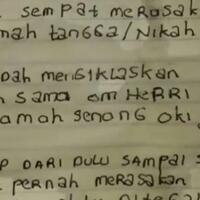 sempat merasak
nah tangga/Nikah
dah mengiklaskan
sama om HERRI
amah senang oki
DARI DULU SAMPAI S
PERNAH MERASAKAN